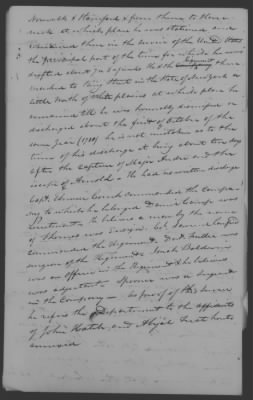 Norwalk & Stamford & from thence to Horse
neck at which place he was stationed and
remained there in the service of the United States
the principal part of the time for which he was
drafted about
marched to in the State of New York a
little North of White plains at which place he
remained till he was honorably dismissed or
discharged about the first of October of the
same year (1780) he is not mistaken as to the
time of his discharge it being about ten days
after the capture of Major Andre and the
escape of Arnold. He had no written discharge
Capt. Couch commanded the company
to which he belonged Daniel Camp was
Lieutenant. He believes a man by the name
of Thomas was Ensign. Col. Samuel Canfield
commanded the Regiment. Doct. was
surgeon of the Regiment Baldwin
was an officer in the Regiment & he believes
was adjutant. was a Sergeant
in the Company. As proof of this service
he refers the Department to the affidavits
of John Hatch and Abijah
annexed